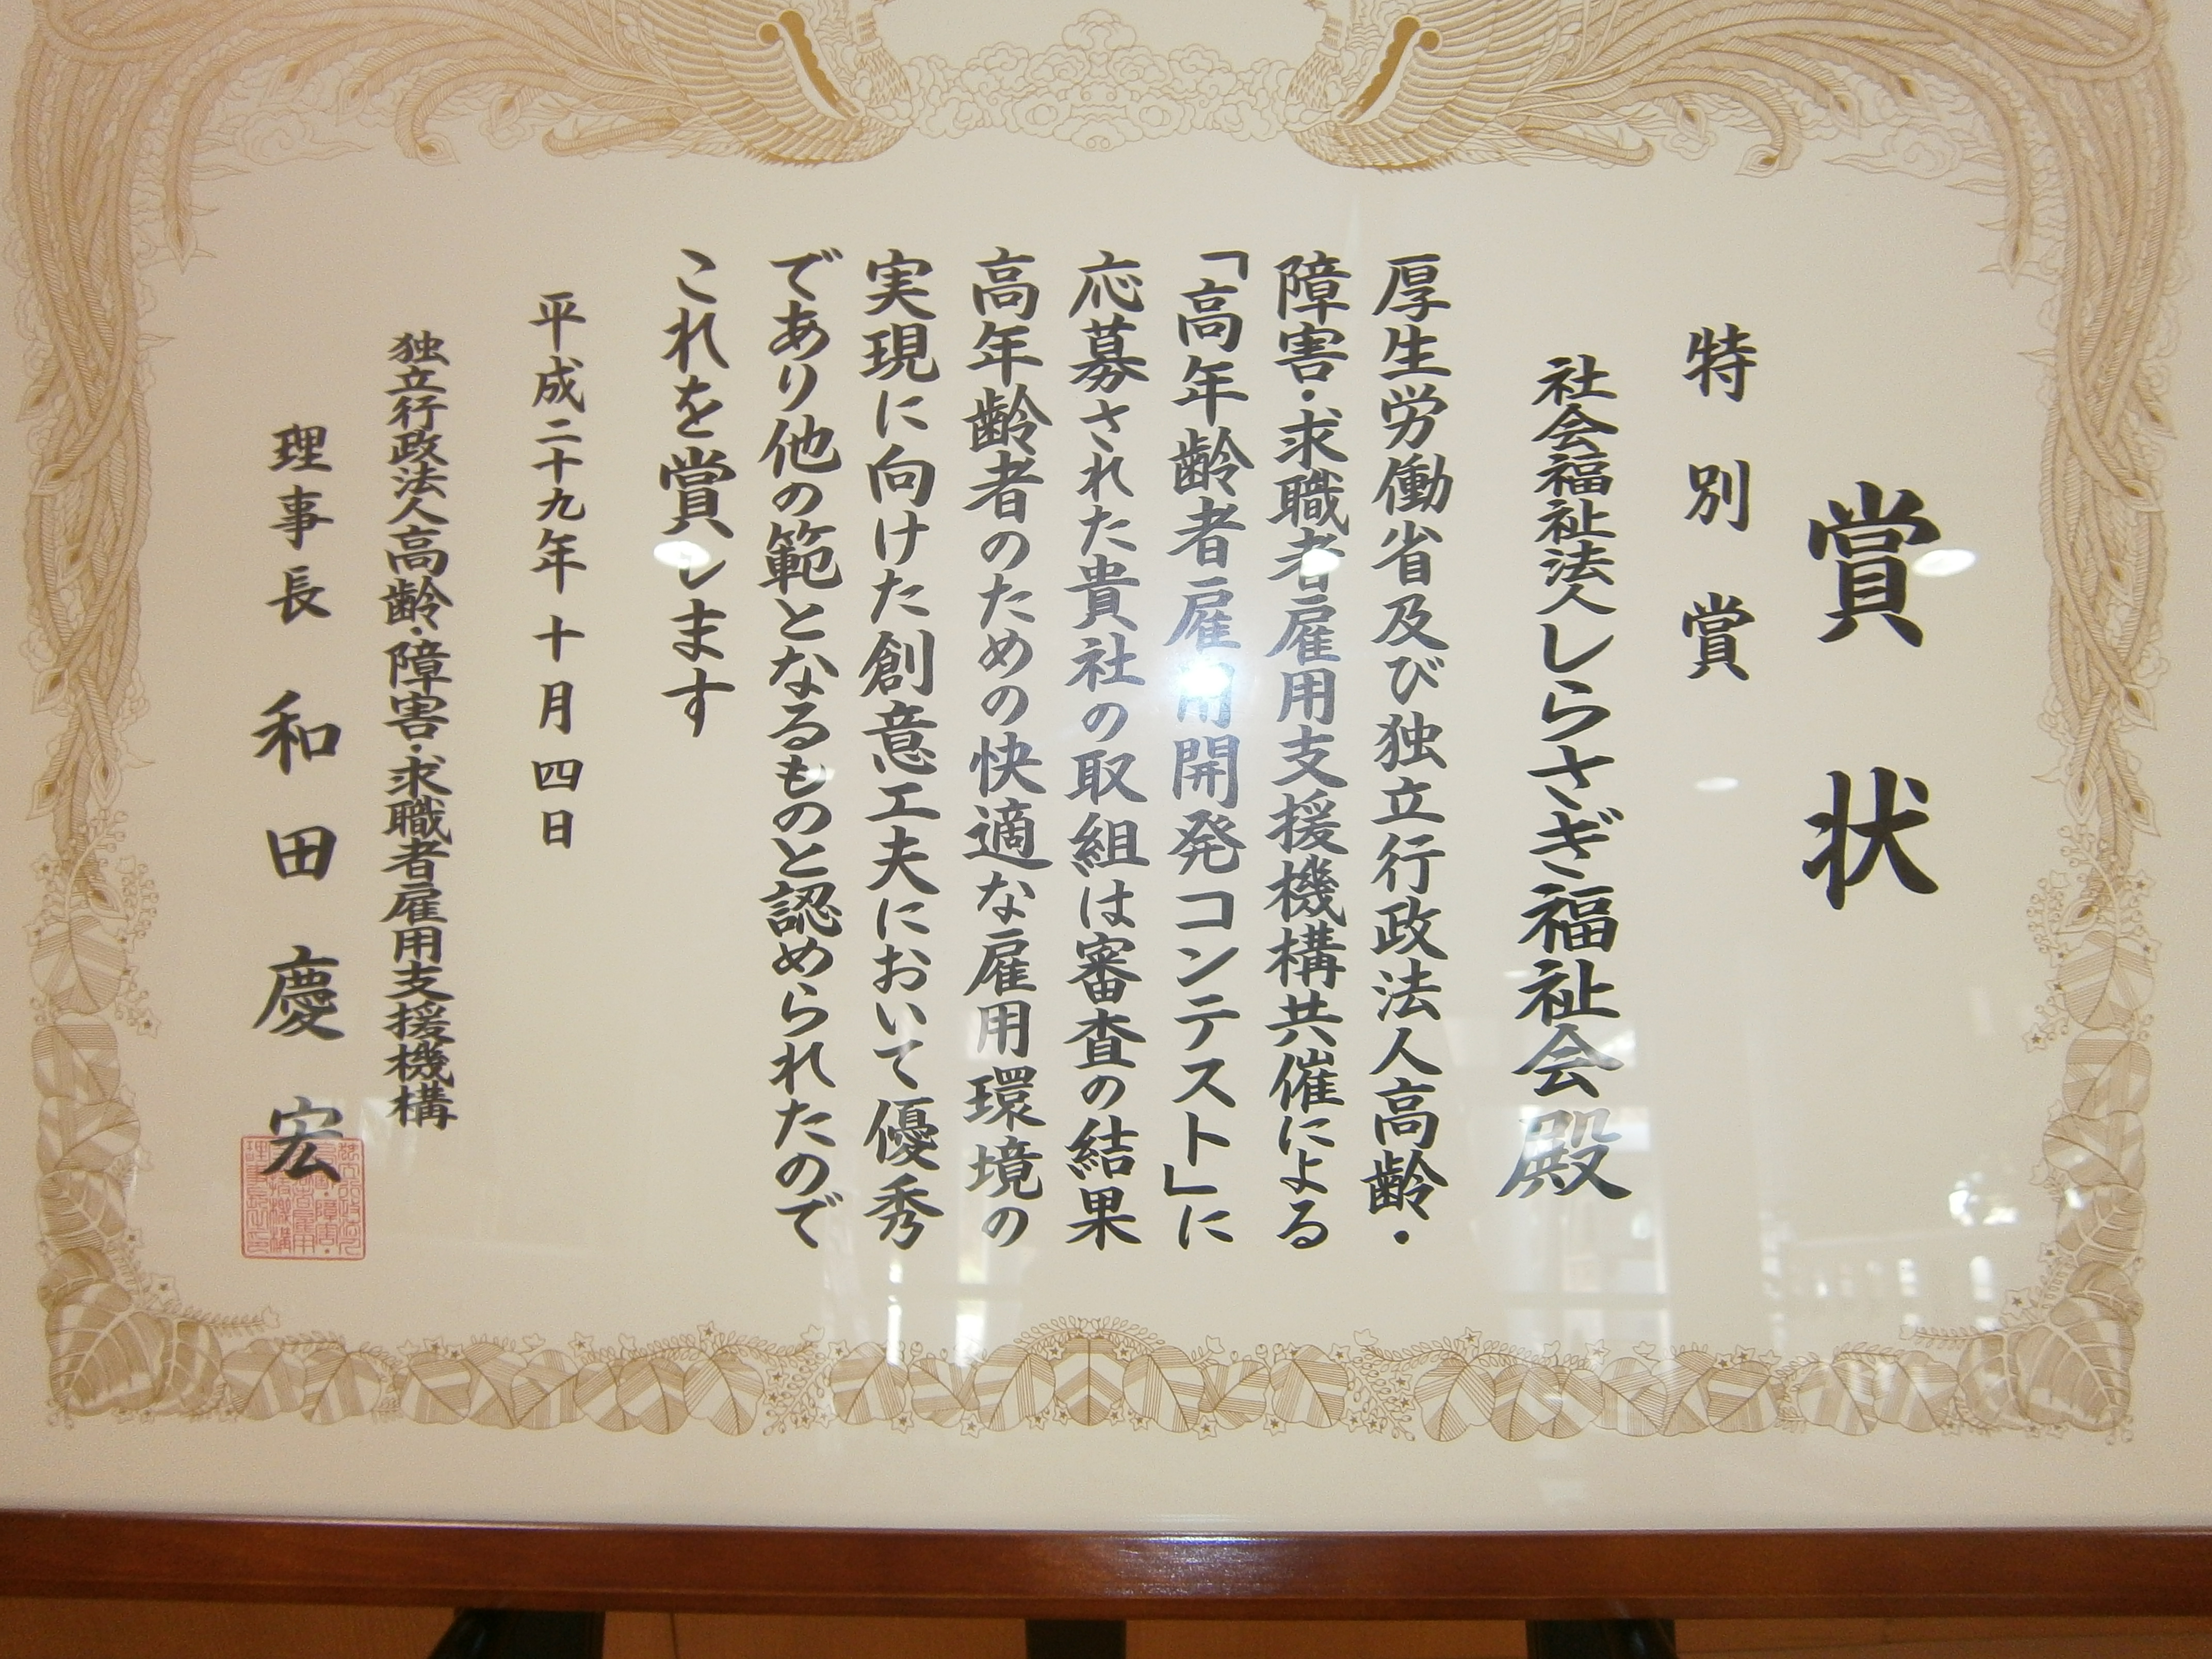 賞状
特別賞
社会福祉法人しらさぎ福祉会殿
厚生労働省及び独立行政法人高齢・
障害・求職者雇用支援機構共催による
「高年齢者雇用開発コンテスト」に
応募された貴社の取組は審査の結果
高年齢者のための快適な雇用環境の
実現に向けた創意工夫において優秀
であり他の範となるものと認められたので
これを賞します
平成二十九年十月四日
独立行政法人高齢・障害・求職者雇用支援機構
理事長 和田慶宏